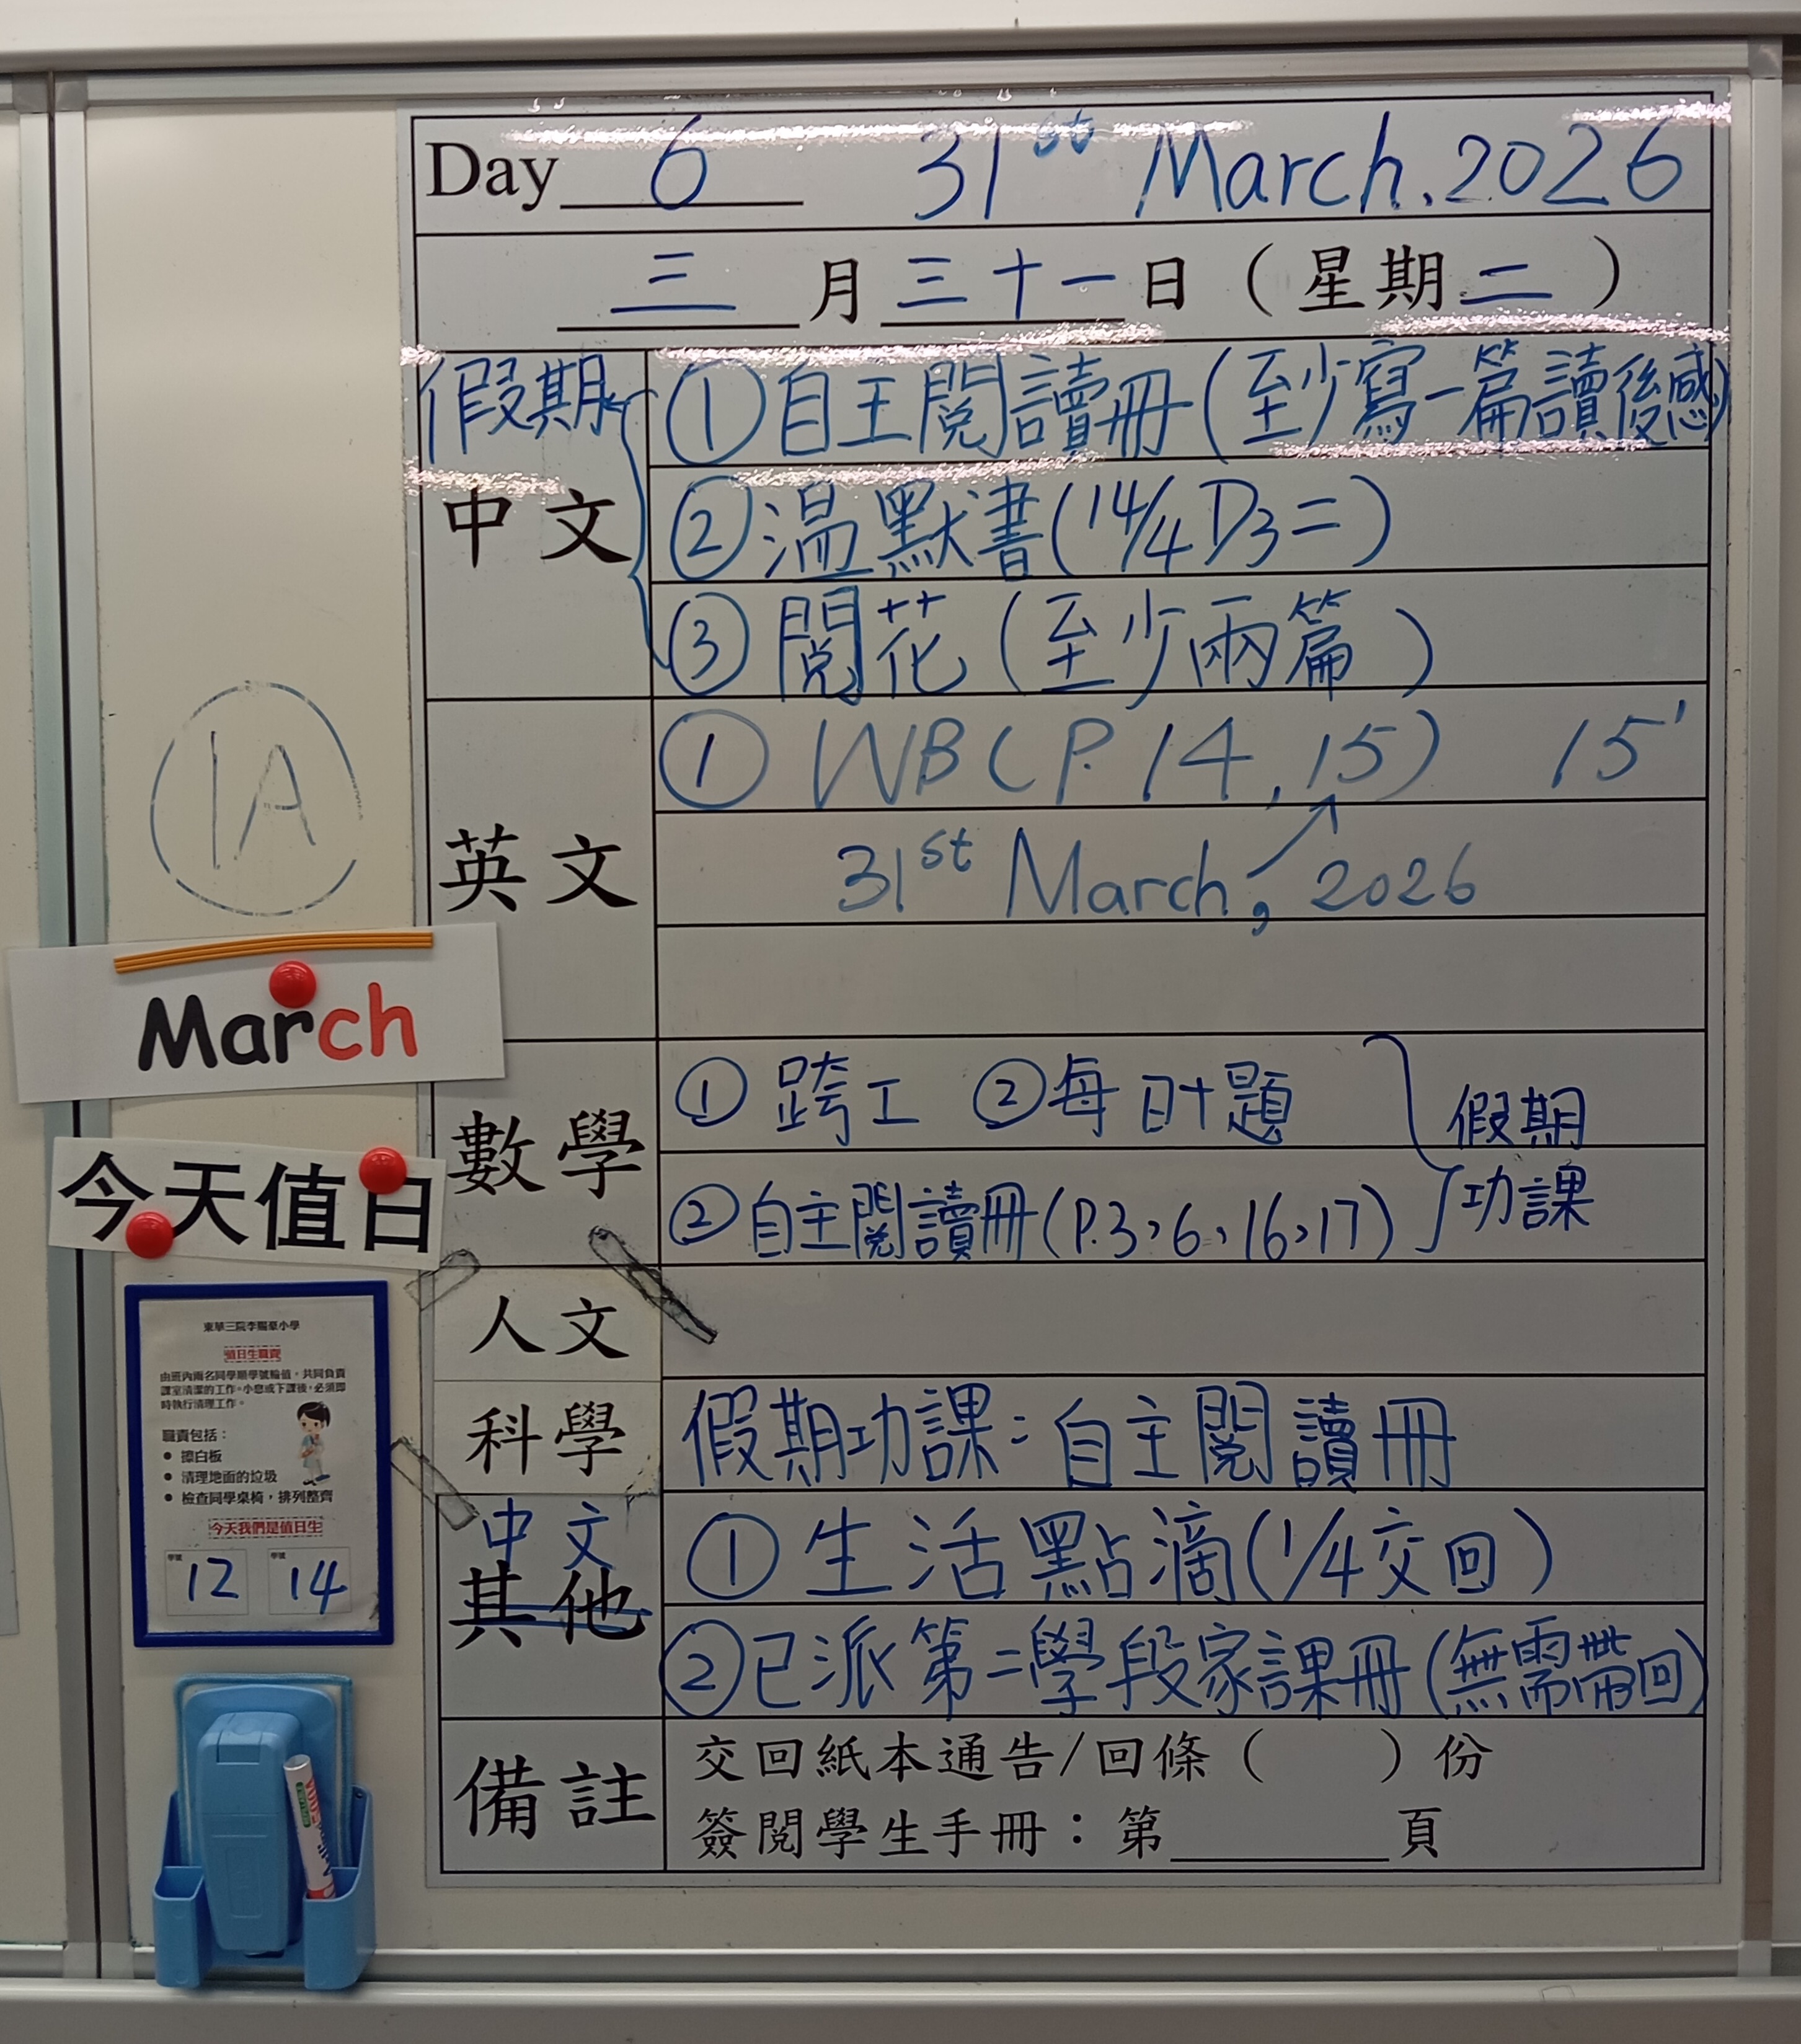 Day 6 31st March, 2026
三月三十一日(星期二)
假期
中文
①自主閱讀冊(至少寫一篇讀後感)
②溫默書(14/4 D3二)
③閱花(至少兩篇)
1A
英文
① WB(P.14,15) 15'
31st March, 2026
March
數學
①跨工 ②每日十題
②自主閱讀冊(P.3,6,16,17)
假期
功課
今天值日
人文
科學
假期功課:自主閱讀冊
中文
其他
①生活點滴(1/4交回)
②已派第二學段家課冊(無需帶回)
備註
交回紙本通告/回條( )份
簽閱學生手冊:第 頁
東華三院李賜豪小學
值日生職責
由班內兩名同學順學號輪值,共同負責
課室清潔的工作。小息或下課後,必須即
時執行清理工作。
職責包括:
• 擦白板
• 清理地面的垃圾
• 檢查同學桌椅,排列整齊
今天我們是值日生
學號 12 學號 14